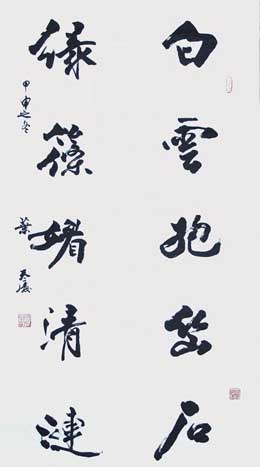 白雲抱幽石
綠篠媚清漣
甲申之冬
葉